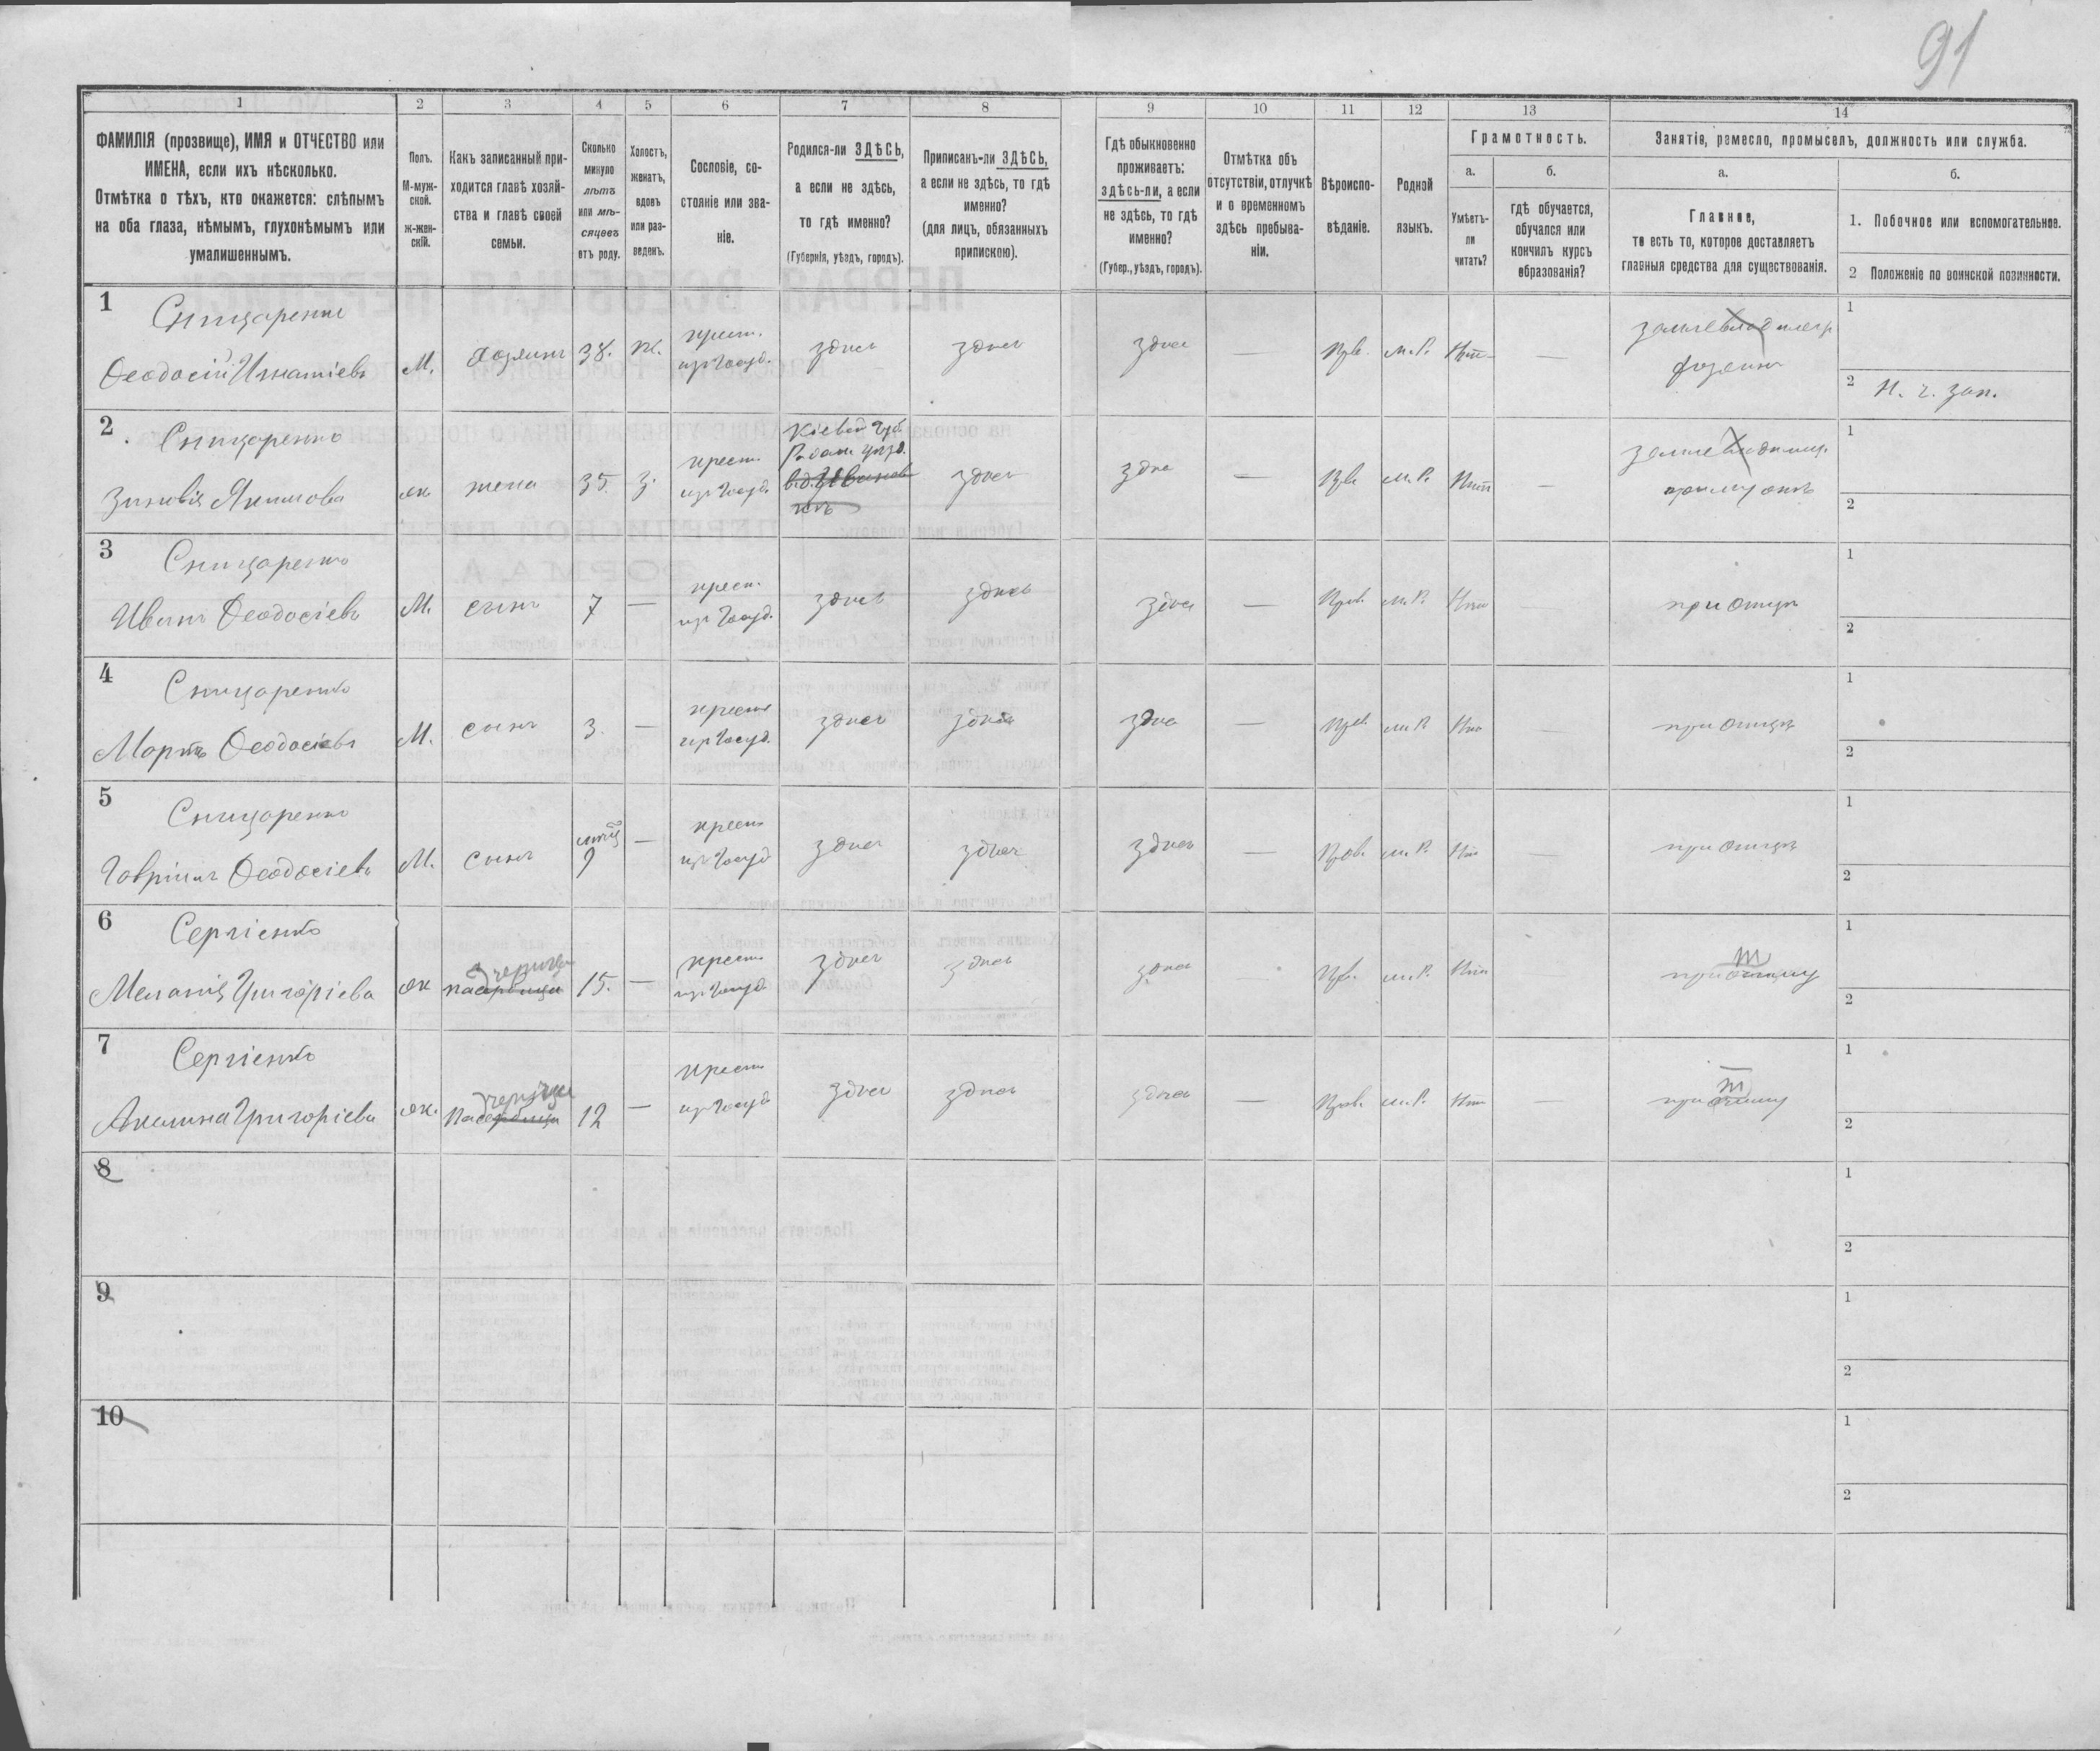 91
1
2
3
4
5
6
7
8
9
10
11
12
13
14
ФАМИЛІЯ (прозвище), ИМЯ и ОТЧЕСТВО или
ИМЕНА, если ихъ нѣсколько.
Отмѣтка о тѣхъ, кто окажется: слѣпымъ
на оба глаза, нѣмымъ, глухонѣмымъ или
умалишеннымъ.
Полъ.
М-муж-
ской.
ж-жен-
скій.
Какъ записанный при-
ходится главѣ хозяй-
ства и главѣ своей
семьи.
Сколько
минуло
лѣтъ
или мѣ-
сяцевъ
отъ роду.
Холостъ,
женатъ,
вдовъ
или раз-
веденъ.
Сословіе, со-
стояніе или зва-
ніе.
Родился-ли ЗДѢСЬ,
а если не здѣсь,
то гдѣ именно?
(Губернія, уѣздъ, городъ).
Приписанъ-ли ЗДѢСЬ,
а если не здѣсь, то гдѣ
именно?
(для лицъ, обязанныхъ
припискою).
Гдѣ обыкновенно
проживаетъ:
здѣсь-ли, а если
не здѣсь, то гдѣ
именно?
(Губер., уѣздъ, городъ).
Отмѣтка объ
отсутствіи, отлучкѣ
и о временномъ
здѣсь пребыва-
ніи.
Вѣроиспо-
вѣданіе.
Родной
языкъ.
Грамотность.
а.
Умѣетъ-
ли
читать?
б.
гдѣ обучается,
обучался или
кончилъ курсъ
образованія?
Занятія, ремесло, промыселъ, должность или служба.
а.
Главное,
то есть то, которое доставляетъ
главныя средства для существованія.
б.
1. Побочное или вспомогательное.
2 Положеніе по воинской повинности.
1
Сницаренко
Ѳеодосій Игнатіевъ
М.
хозяинъ
38.
ж.
крест.
изъ Госуд.
здѣсь
здѣсь
здѣсь
—
Прв.
м.Р.
Нѣт
—
землевладѣлец
хозяинъ
1
2 Н. ч. зап.
2
Сницаренко
Зиновія Якимова
ж
жена
35.
З.
крест.
изъ Госуд.
Кіевск Губ.
здѣсь
здѣсь
—
Прв.
м.Р.
Нѣт
—
1
2
3
Сницаренко
Иванъ Ѳеодосіевъ
М.
сынъ
7
—
крест.
изъ Госуд.
здѣсь
здѣсь
здѣсь
—
Прав.
м.Р.
Нѣт
при отцѣ
1
2
4
Сницаренко
Мартъ Ѳеодосіевъ
М.
сынъ
3.
—
крест
изъ Госуд.
здѣсь
здѣсь
здѣсь
—
Прв.
м.Р.
Нѣт
при отцѣ
1
2
5
Сницаренко
Гавріилъ Ѳеодосіевъ
М.
сынъ
9
—
крест
изъ Госуд
здѣсь
здѣсь
здѣсь
—
Прав.
м.Р.
Нѣт
—
при отцѣ
1
2
6
Сергіенко
Меланія Григоріева
ж
падчерица
15.
—
крест
изъ Госуд
здѣсь
здѣсь
здѣсь
Прв.
м.Р.
Нѣт
1
2
7
Сергіенко
Акилина Григоріева
ж.
падчерица
12
—
крест
изъ Госуд
здѣсь
здѣсь
здѣсь
—
Прав.
м.Р.
Нѣт
—
1
2
8
1
2
9
1
2
10
1
2